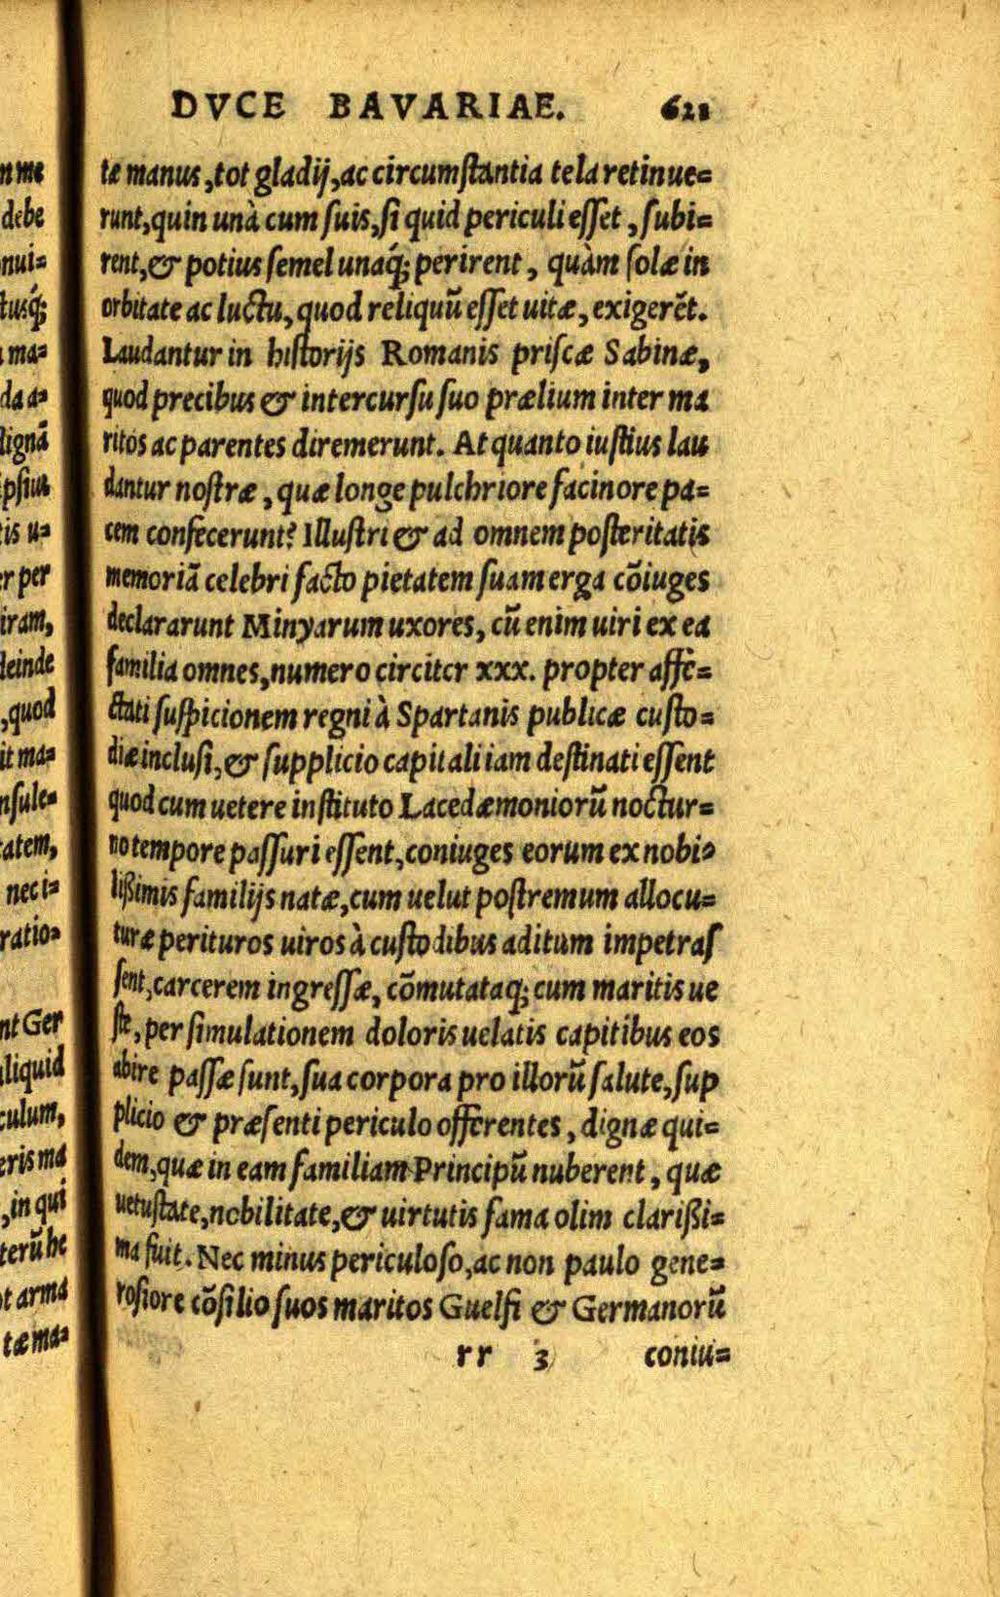 DVCE BAVARIAE. 621
tæ manus, tot gladij, ac circumstantia tela retinue=
runt, quin unà cum suis, si quid periculi esset, subi=
rent, & potius semel unaq́; perirent, quàm solæ in
orbitate ac luctu, quod reliquũ esset uitæ, exigerẽt.
Laudantur in historijs Romanis priscæ Sabinæ,
quod precibus & intercursu suo prælium inter ma
ritos ac parentes diremerunt. At quanto iustius lau
dantur nostræ, quæ longe pulchriore facinore pa=
cem confecerunt? Illustri & ad omnem posteritatis
memoriã celebri facto pietatem suam erga cõiuges
declararunt Minyarum uxores, cũ enim uiri ex ea
familia omnes, numero circiter xxx. propter affe=
ctati suspicionem regni à Spartanis publicæ custo=
diæ inclusi, & supplicio capitali iam destinati essent
quod cum uetere instituto Lacedæmoniorũ noctur=
no tempore passuri essent, coniuges eorum ex nobi=
lißimis familijs natæ, cum uelut postremum allocu=
turæ perituros uiros à custodibus aditum impetras
sent, carcerem ingressæ, cõmutataq́; cum maritis ue
ste, per simulationem doloris uelatis capitibus eos
abire passæ sunt, sua corpora pro illorũ salute, sup
plicio & præsenti periculo offerentes, dignæ qui=
dem, quæ in eam familiam Principũ nuberent, quæ
uetustate, nobilitate, & uirtutis fama olim clarißi=
ma fuit. Nec minus periculoso, ac non paulo gene=
rosiore cõsilio suos maritos Guelfi & Germanorũ
rr 3 coniu=